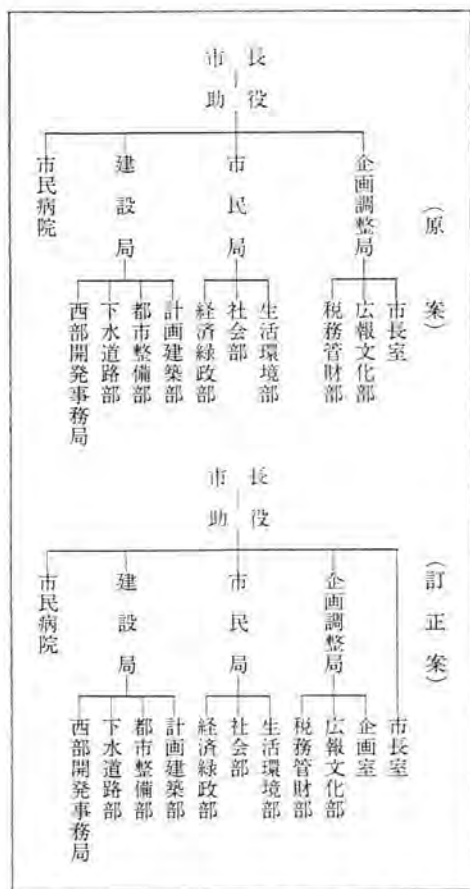 （原案）
市長
助役
企画調整局
市長室
広報文化部
税務管財部
市民局
生活環境部
社会部
経済緑政部
建設局
計画建築部
都市整備部
下水道路部
西部開発事務局
市民病院
（訂正案）
市長
助役
市長室
企画調整局
企画室
広報文化部
税務管財部
市民局
生活環境部
社会部
経済緑政部
建設局
計画建築部
都市整備部
下水道路部
西部開発事務局
市民病院